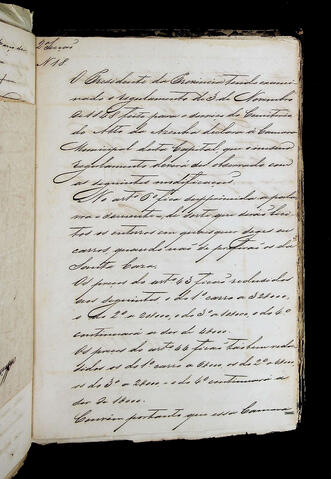 2ª Secção
N. 18.
O Presidente da Provincia tendo exami
nado o regulamento de 3 de Novembro
de 1856 feito para o serviço do Cemiterio
do Alto da pela Camara
Municipal desta Capital, que o mesmo
regulamento deverá ser observado com
as seguintes modificações.
No artº 6º fica supprimida a pala
vra dementes, de sorte que serão livres
os enterros em quaesquer seges ou
carros, quando não se prefirão os da
Santa Casa.
Os preços do artº 43 ficão redusidos
aos seguintes o do 1º carro a 32000,
o do 2º a 20000, o do 3º a 10000, o do 4º
continuará a ser de 4000.
Os preços do artº 44 ficão tambem redu
sidos os do 1º carro a 6000 os do 2º a 4000
os do 3º a 2000 e do 4º continuará a
ser de 1000.
Convém portanto que essa Camara